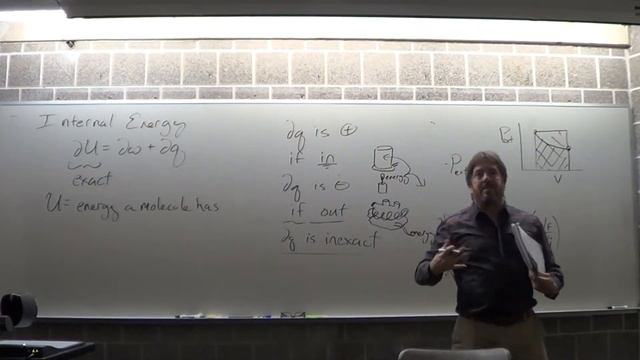 Internal Energy
∂U = ∂ω + ∂q
exact
U = energy a molecule has
∂q is ⊕
if in
∂q is ⊖
if out
∂q is inexact
energy
energy
V